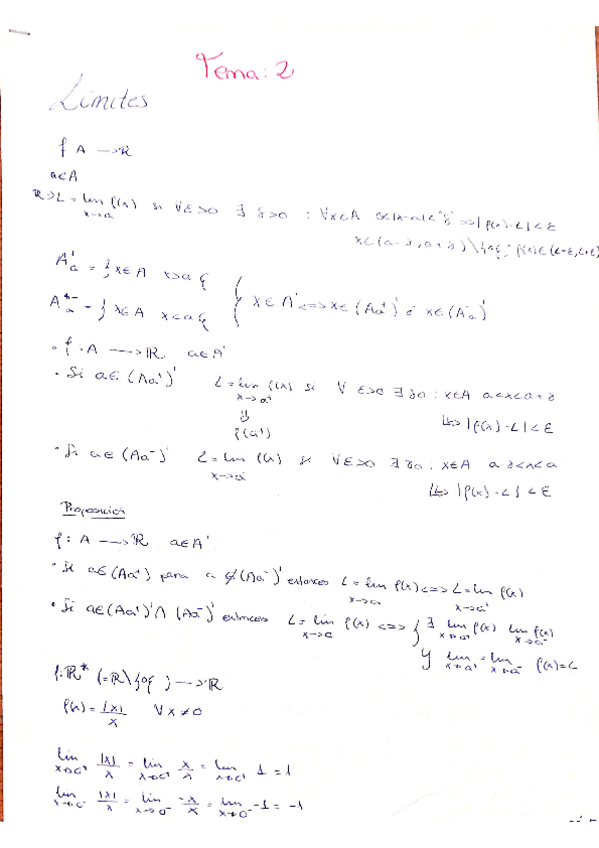 Tema: 2
Límites
f A ⟶ ℝ
a∈A
ℝ∋L = lim f(x) si ∀ε>0 ∃ δ>0 : ∀x∈A 0<|x-a|<δ ⇒ |f(x)-L|<ε
x→a
x∈(a-δ, a+δ)\{a} f(x)∈(L-ε, L+ε)
Aa⁺ = {x∈A x>a}
Aa⁻ = {x∈A x<a}
x∈A' <=> x∈(Aa⁺)' ó x∈(Aa⁻)'
• f: A ⟶ ℝ a∈A'
• Si a∈(Aa⁺)' L = lim f(x) si ∀ ε>0 ∃ δ>0 : x∈A a<x<a+δ
x→a⁺
f(a⁺)
↳ |f(x)-L|<ε
• Si a∈(Aa⁻)' L = lim f(x) si ∀ε>0 ∃ δ>0 : x∈A a-δ<x<a
x→a⁻
↳ |f(x)-L|<ε
Proposición
f: A ⟶ ℝ a∈A'
• Si a∈(Aa⁺) para a ∉(Aa⁻)' entonces L = lim f(x) <=> L = lim f(x)
x→a x→a⁺
• Si a∈(Aa⁺)'∩(Aa⁻)' entonces L = lim f(x) <=> { ∃ lim f(x) lim f(x)
x→a x→a⁺ x→a⁻
y lim = lim f(x)=L
x→a⁺ x→a⁻
f: ℝ* (=ℝ\{0}) ⟶ ℝ
f(x) = |x|/x ∀x≠0
lim |x|/x = lim x/x = lim 1 = 1
x→0⁺ x→0⁺ x→0⁺
lim |x|/x = lim -x/x = lim -1 = -1
x→0⁻ x→0⁻ x→0⁻